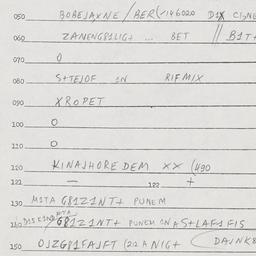 050 BOBEJAXNE / BER(✓146020 D1X CISNE
060 ZANENG81LIG+ ... BET // B1T+
070 0
080 S+TEJOF 1N RIFMIX
090 XROPET
100 O
110 O
120 KINAJHORE DEM XX (490
121 — 122 +
130 M1TA G81Z1NT+ PUNEM
140 G81Z1NT+ PUNEM 1N A S+LAF1F1S
150 OJZG81FAJFT (22 A N1G+ (DAJNK8